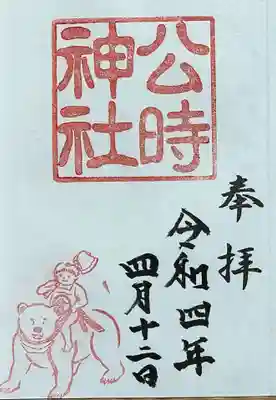 公時
神社
奉拝
令和四年
四月十二日